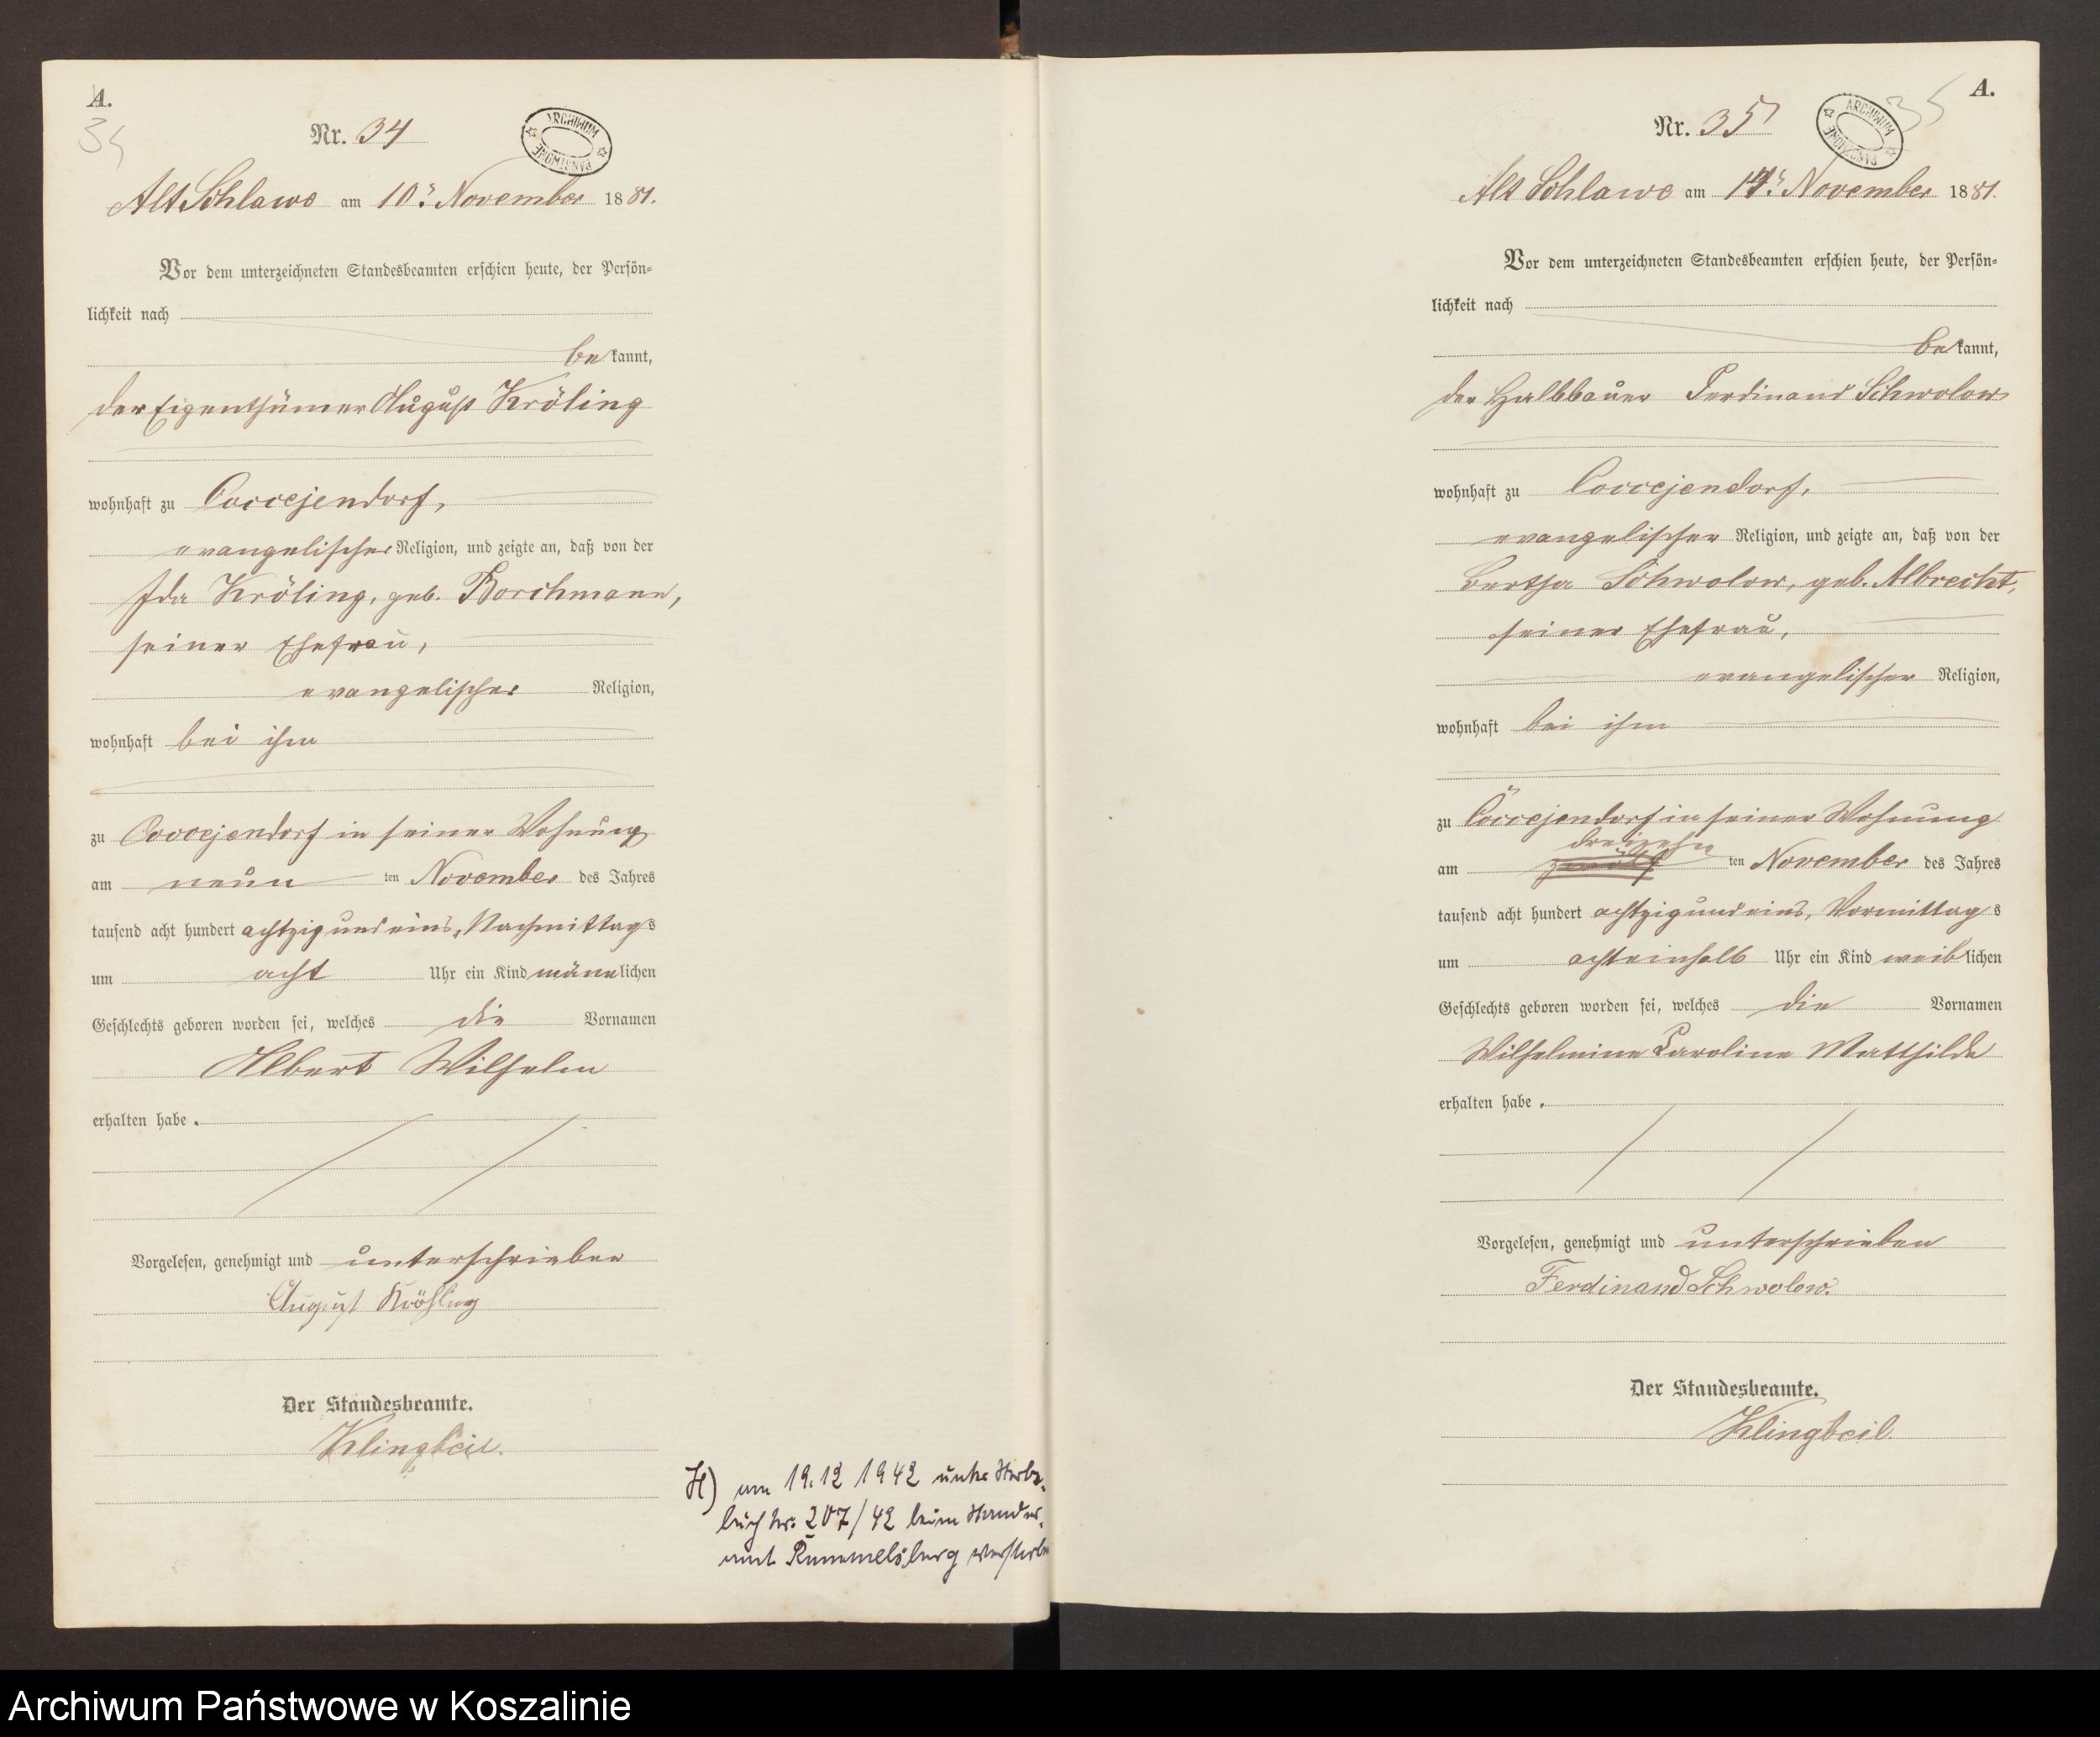 A.
34
Nr. 34
ARCHIWUM PAŃSTWOWE
Alt Schlawe am 10. November 1881.
Vor dem unterzeichneten Standesbeamten erschien heute, der Persön=
lichkeit nach
bekannt,
der Eigenthümer August Kröling
wohnhaft zu Coccejendorf,
evangelischer Religion, und zeigte an, daß von der
Ida Kröling, geb. Borchmann,
seiner Ehefrau,
evangelischer Religion,
wohnhaft bei ihm
zu Coccejendorf in seiner Wohnung
am neun ten November des Jahres
tausend acht hundert achtzig und eins, Nachmittags
um acht Uhr ein Kind männlichen
Geschlechts geboren worden sei, welches die Vornamen
Albert Wilhelm
erhalten habe.
Vorgelesen, genehmigt und unterschrieben
August Kröhling
Der Standesbeamte.
Klingbeil.
H) am 19.12 1942 unter Sterbe-
buch Nr. 207/42 beim Standes-
amt Rummelsburg verstorben
A.
35
Nr. 35
ARCHIWUM PAŃSTWOWE
Alt Schlawe am 14. November 1881.
Vor dem unterzeichneten Standesbeamten erschien heute, der Persön=
lichkeit nach
bekannt,
der Halbbauer Ferdinand Schwolow
wohnhaft zu Coccejendorf,
evangelischer Religion, und zeigte an, daß von der
Bertha Schwolow, geb. Albrecht,
seiner Ehefrau,
evangelischer Religion,
wohnhaft bei ihm
zu Coccejendorf in seiner Wohnung
dreizehn
am zwölf ten November des Jahres
tausend acht hundert achtzig und eins, Vormittags
um achteinhalb Uhr ein Kind weiblichen
Geschlechts geboren worden sei, welches die Vornamen
Wilhelmine Caroline Matthilde
erhalten habe.
Vorgelesen, genehmigt und unterschrieben
Ferdinand Schwolow.
Der Standesbeamte.
Klingbeil.
Archiwum Państwowe w Koszalinie